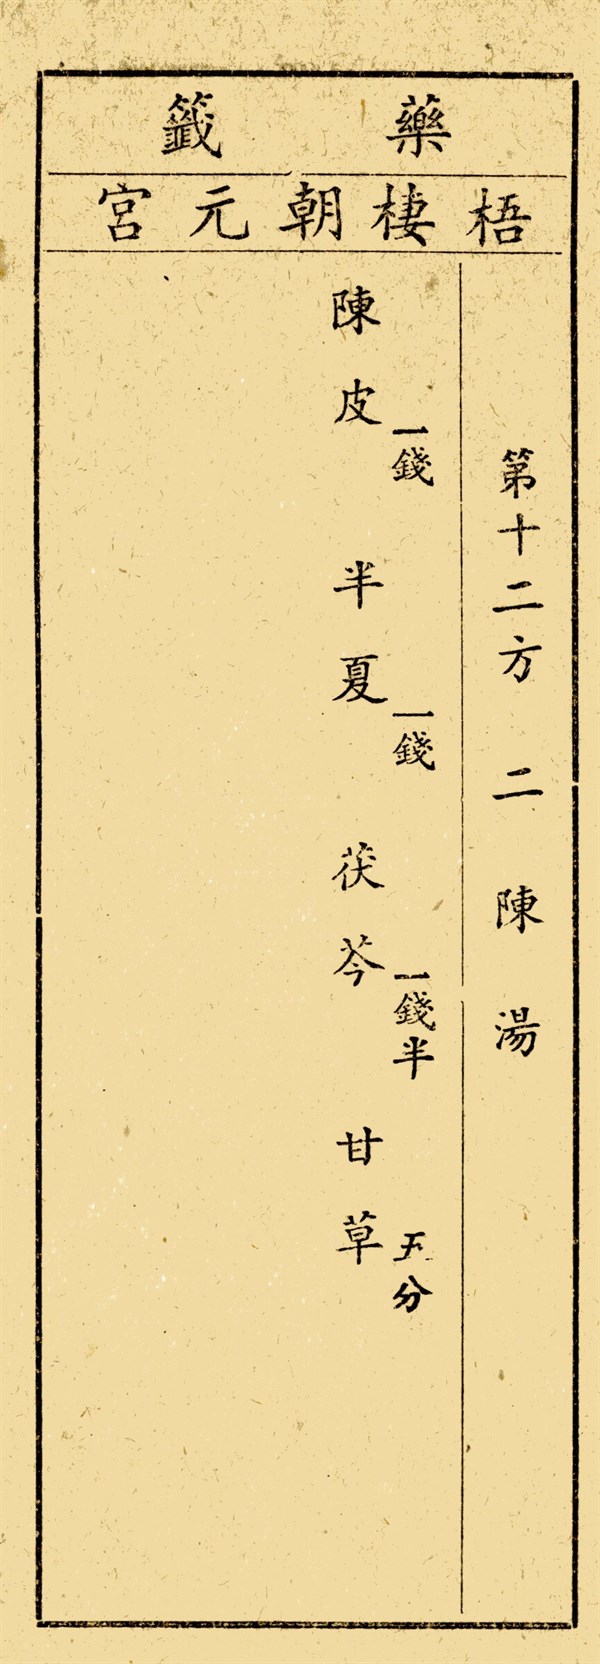 藥籤
梧棲朝元宮
第十二方 二陳湯
陳皮一錢 半夏一錢 茯苓一錢半 甘草五分